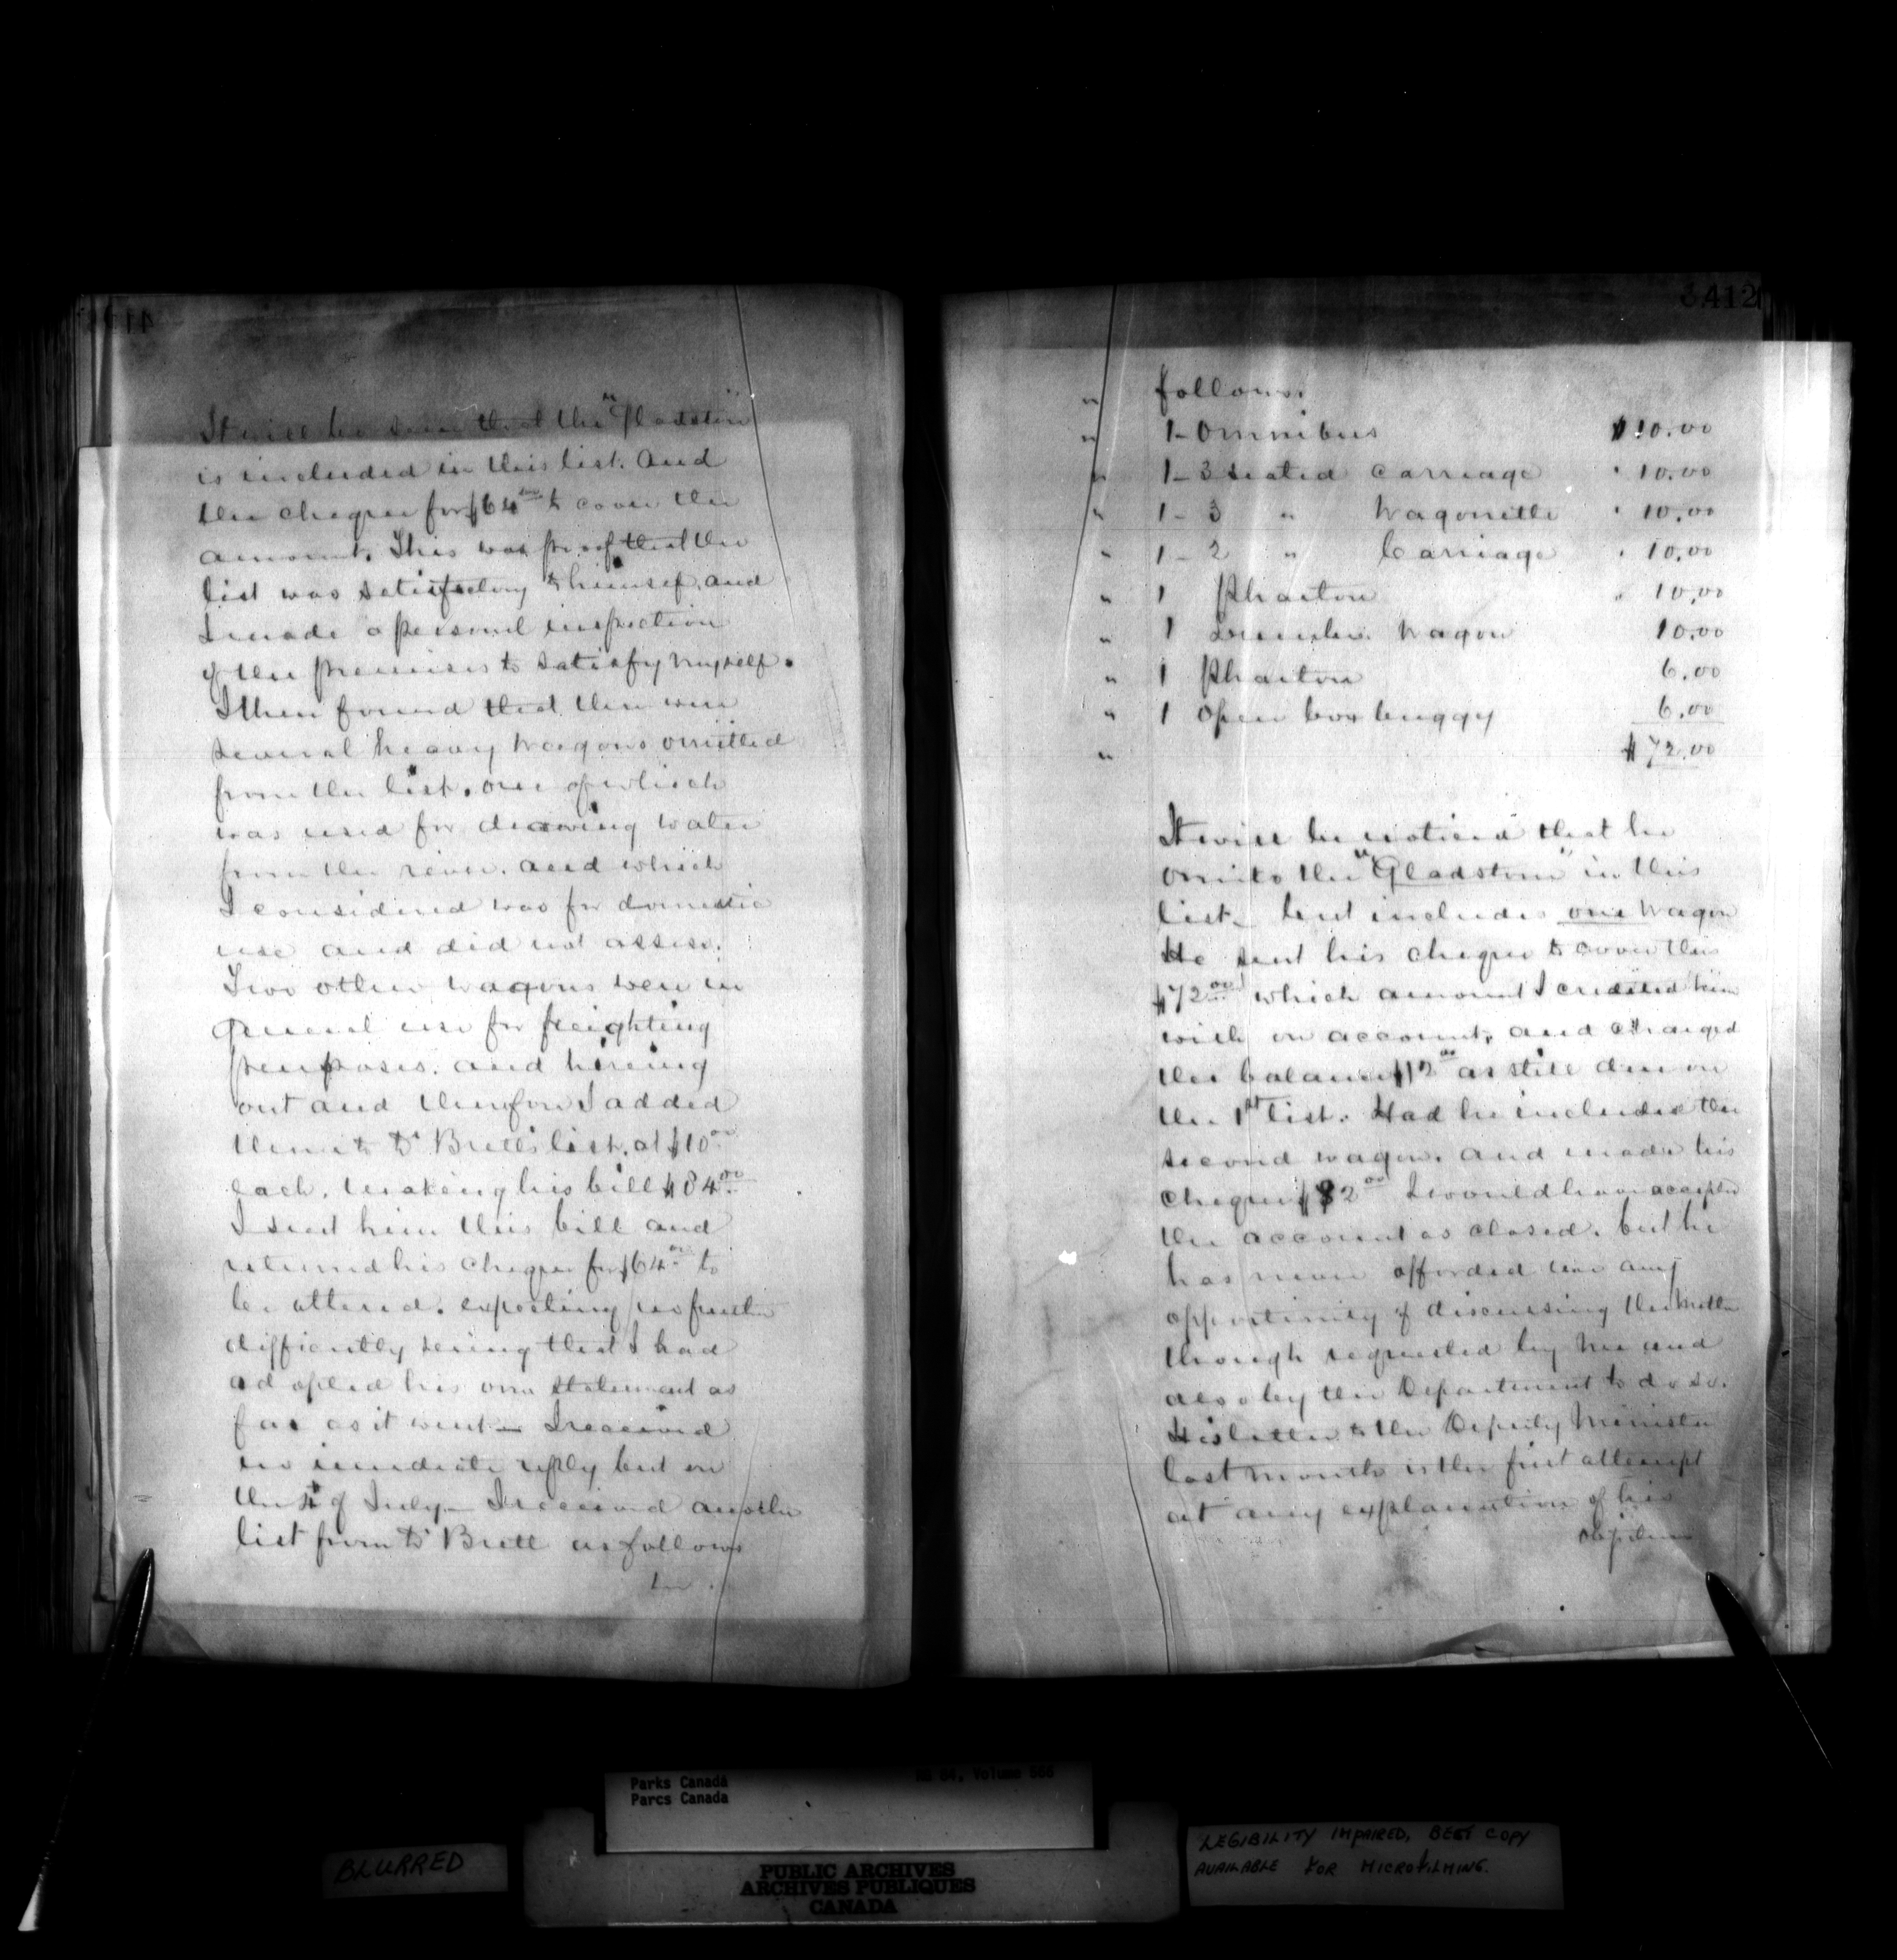 It will be seen that the "Gladstone"
is included in this list. and
the cheque for $64.00 to cover the
amount. This was proof that the
list was satisfactory to himself, and
I made a personal inspection
of the premises to satisfy myself.
I then found that there were
several heavy wagons omitted
from the list. one of which
was used for drawing water
from the river. and which
I considered was for domestic
use and did not assess.
Two other wagons were in
general use for freighting
purposes. and hireing
out and therefore I added
them to Dr Brett's list. at $10.00
each. making his bill $84.00
I sent him this bill and
returned his cheque for $64.00 to
be altered. expecting no further
difficulty seeing that I had
adopted his own statement as
far as it went — I received
no imediate reply but on
the of July — I received another
list from Dr Brett as follows
412
follows.
1- Omnibus $10.00
1- 3 seated carriage " 10.00
1- 3 " Wagonette " 10.00
1- 2 " Carriage " 10.00
1 Phaeton " 10.00
1 Wagon 10.00
1 Phaeton 6.00
1 Open box buggy 6.00
$72.00
It will be noticed that he
omits the "Gladstone" in this
list — but includes one wagon
He sent his cheque to cover this
$72.00 which amount I credited him
with on account, and charged
the balance $12.00 as still due on
the 1st list. Had he included the
second wagon. and made his
cheque $82.00 I would have accepted
the account as closed. but he
has never afforded me any
opportunity of discussing the matter
though requested by me and
also by the Department to do so.
His letter to the Deputy Minister
last month is the first attempt
at any explanation of his
Parks Canada
Parcs Canada
RG 84, Volume 566
BLURRED
PUBLIC ARCHIVES
ARCHIVES PUBLIQUES
CANADA
LEGIBILITY IMPAIRED, BEST COPY
AVAILABLE FOR MICROFILMING.